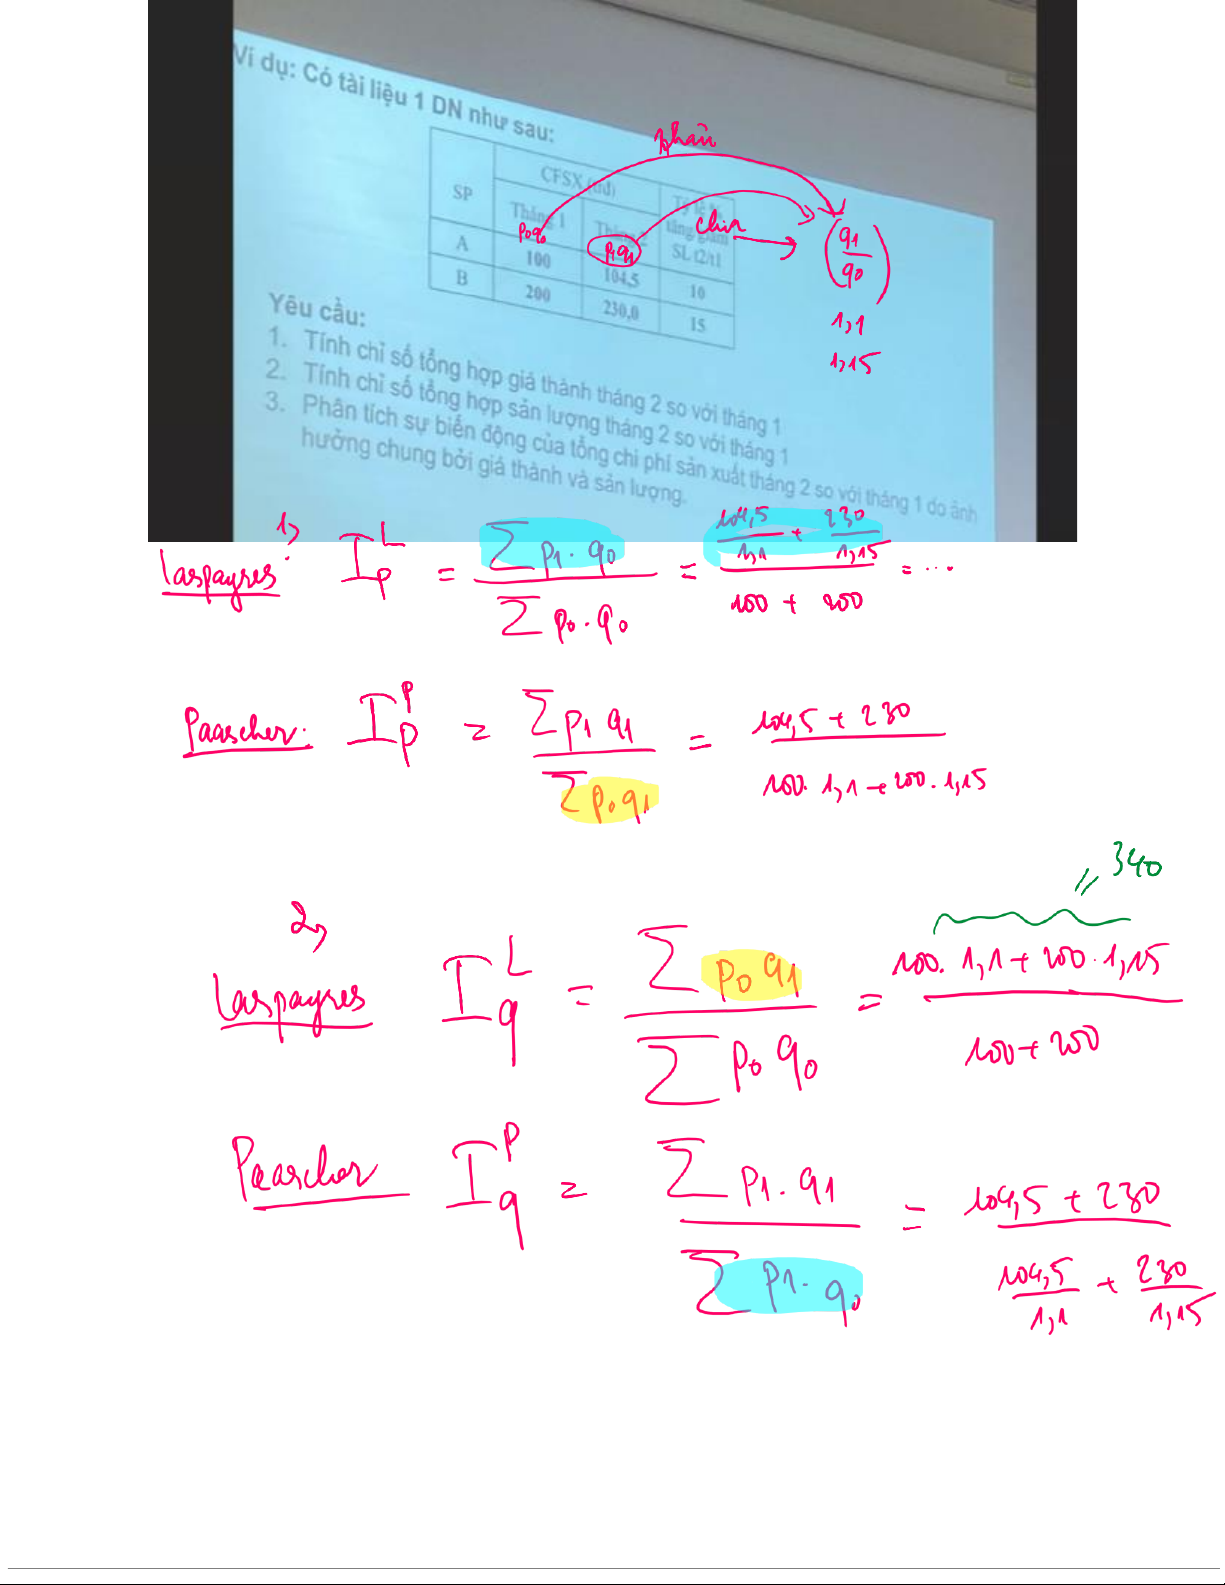 Ví dụ: Có tài liệu 1 DN như sau:
nhân
SP CFSX (trđ) Tỷ lệ % tăng giảm SL t2/t1
Tháng 1 Tháng 2
p₀q₀ p₁q₁ chia (q₁/q₀)
A 100 104,5 10 1,1
B 200 230,0 15 1,15
Yêu cầu:
1. Tính chỉ số tổng hợp giá thành tháng 2 so với tháng 1
2. Tính chỉ số tổng hợp sản lượng tháng 2 so với tháng 1
3. Phân tích sự biến động của tổng chi phí sản xuất tháng 2 so với tháng 1 do ảnh
hưởng chung bởi giá thành và sản lượng.
1)
Laspayres: I_p^L = (∑ p₁.q₀)/(∑ p₀.q₀) = (104,5/1,1 + 230/1,15)/(100 + 200) = ...
Paascher: I_p^P = (∑ p₁q₁)/(∑ p₀q₁) = (104,5 + 230)/(100. 1,1 + 200. 1,15)
= 340
2)
Laspayres I_q^L = (∑ p₀q₁)/(∑ p₀q₀) = (100. 1,1 + 200. 1,15)/(100 + 200)
Paascher I_q^P = (∑ p₁.q₁)/(∑ p₁.q₀) = (104,5 + 230)/(104,5/1,1 + 230/1,15)